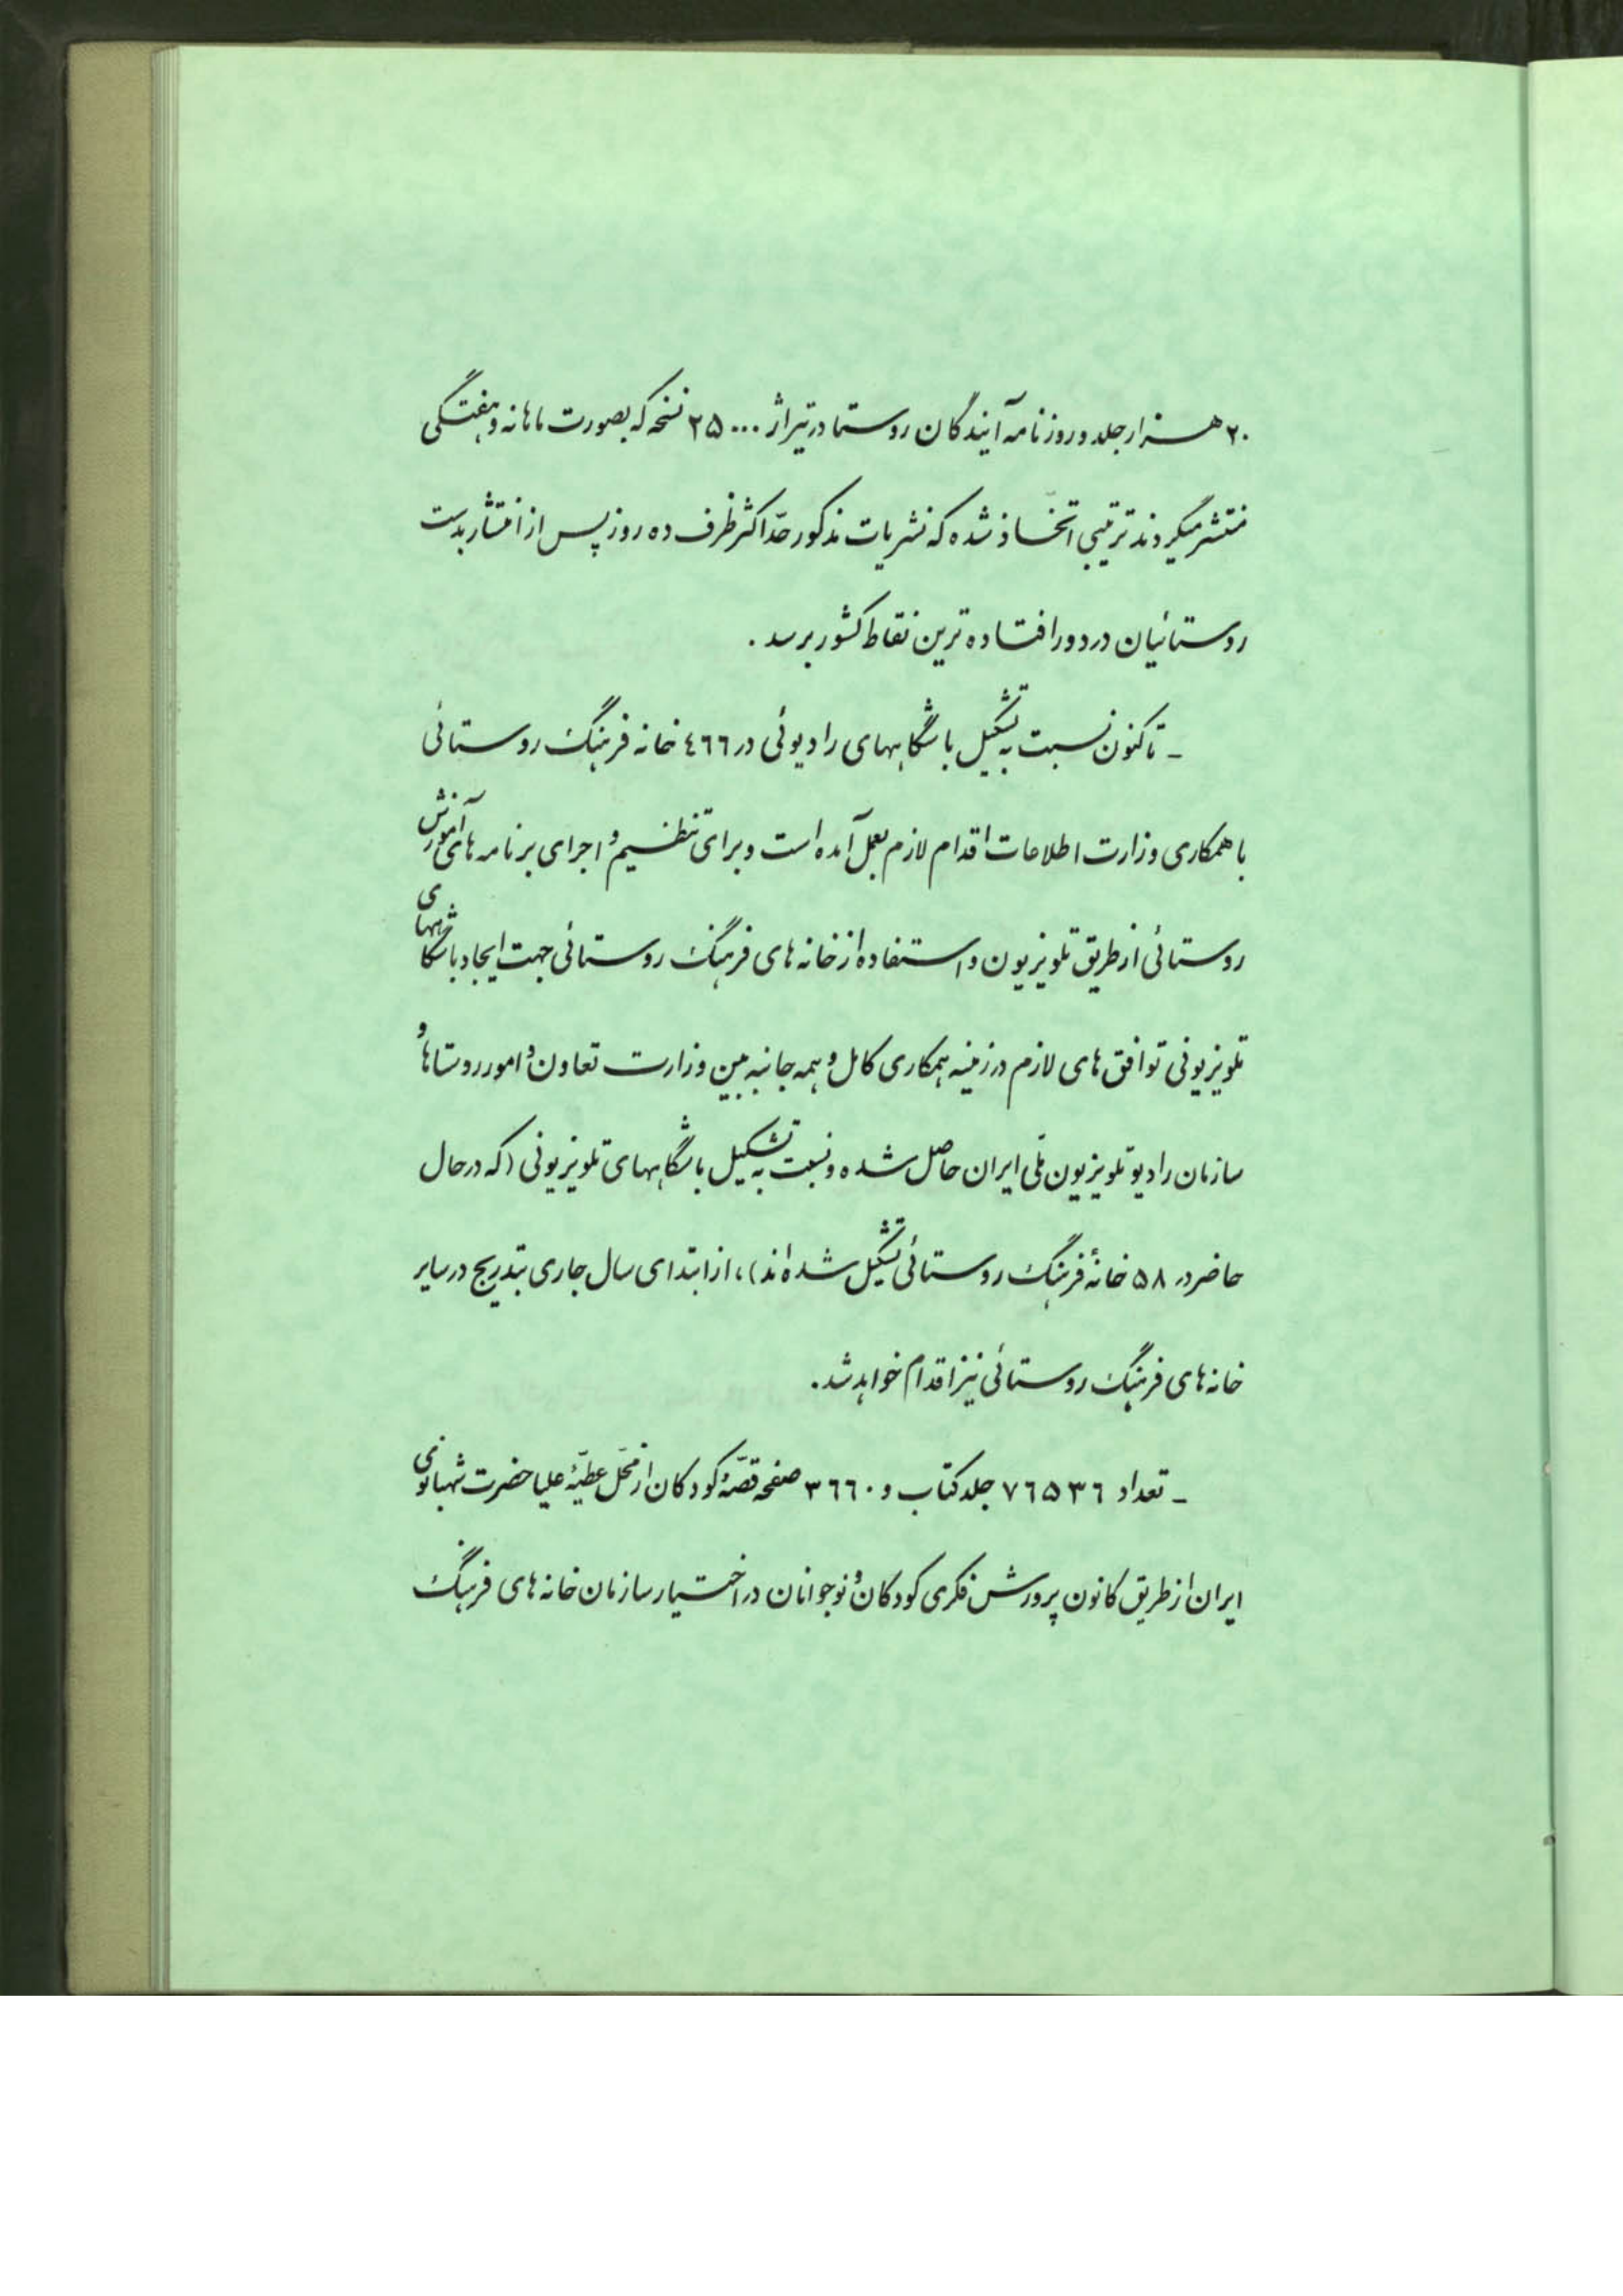 ۲۰ هزار جلد و روزنامه آیندگان روستا در تیراژ ۲۵۰۰۰ نسخه که بصورت ماهانه و هفتگی
منتشر میگردند ترتیبی اتخاذ شده که نشریات مذکور حدّاکثر ظرف ده روز پس از انتشار بدست
روستائیان در دورافتاده ترین نقاط کشور برسد .
ـ تاکنون نسبت به تشکیل باشگاههای رادیوئی در ٤٦٦ خانه فرهنگ روستائی
با همکاری وزارت اطلاعات اقدام لازم بعمل آمده است و برای تنظیم و اجرای برنامه های آموزش
روستائی از طریق تلویزیون و استفاده از خانه های فرهنگ روستائی جهت ایجاد باشگاههای
تلویزیونی توافق های لازم در زمینه همکاری کامل و همه جانبه بین وزارت تعاون و امور روستاها و
سازمان رادیو تلویزیون ملّی ایران حاصل شده و نسبت به تشکیل باشگاههای تلویزیونی (که در حال
حاضر در ۵۸ خانهٔ فرهنگ روستائی تشکیل شده اند)، از ابتدای سال جاری بتدریج در سایر
خانه های فرهنگ روستائی نیز اقدام خواهد شد.
ـ تعداد ۷٦۵۳٦ جلد کتاب و ۳٦٦۰ صفحه قصّهٔ کودکان از محلّ عطیّهٔ علیاحضرت شهبانوی
ایران از طریق کانون پرورش فکری کودکان و نوجوانان در اختیار سازمان خانه های فرهنگ